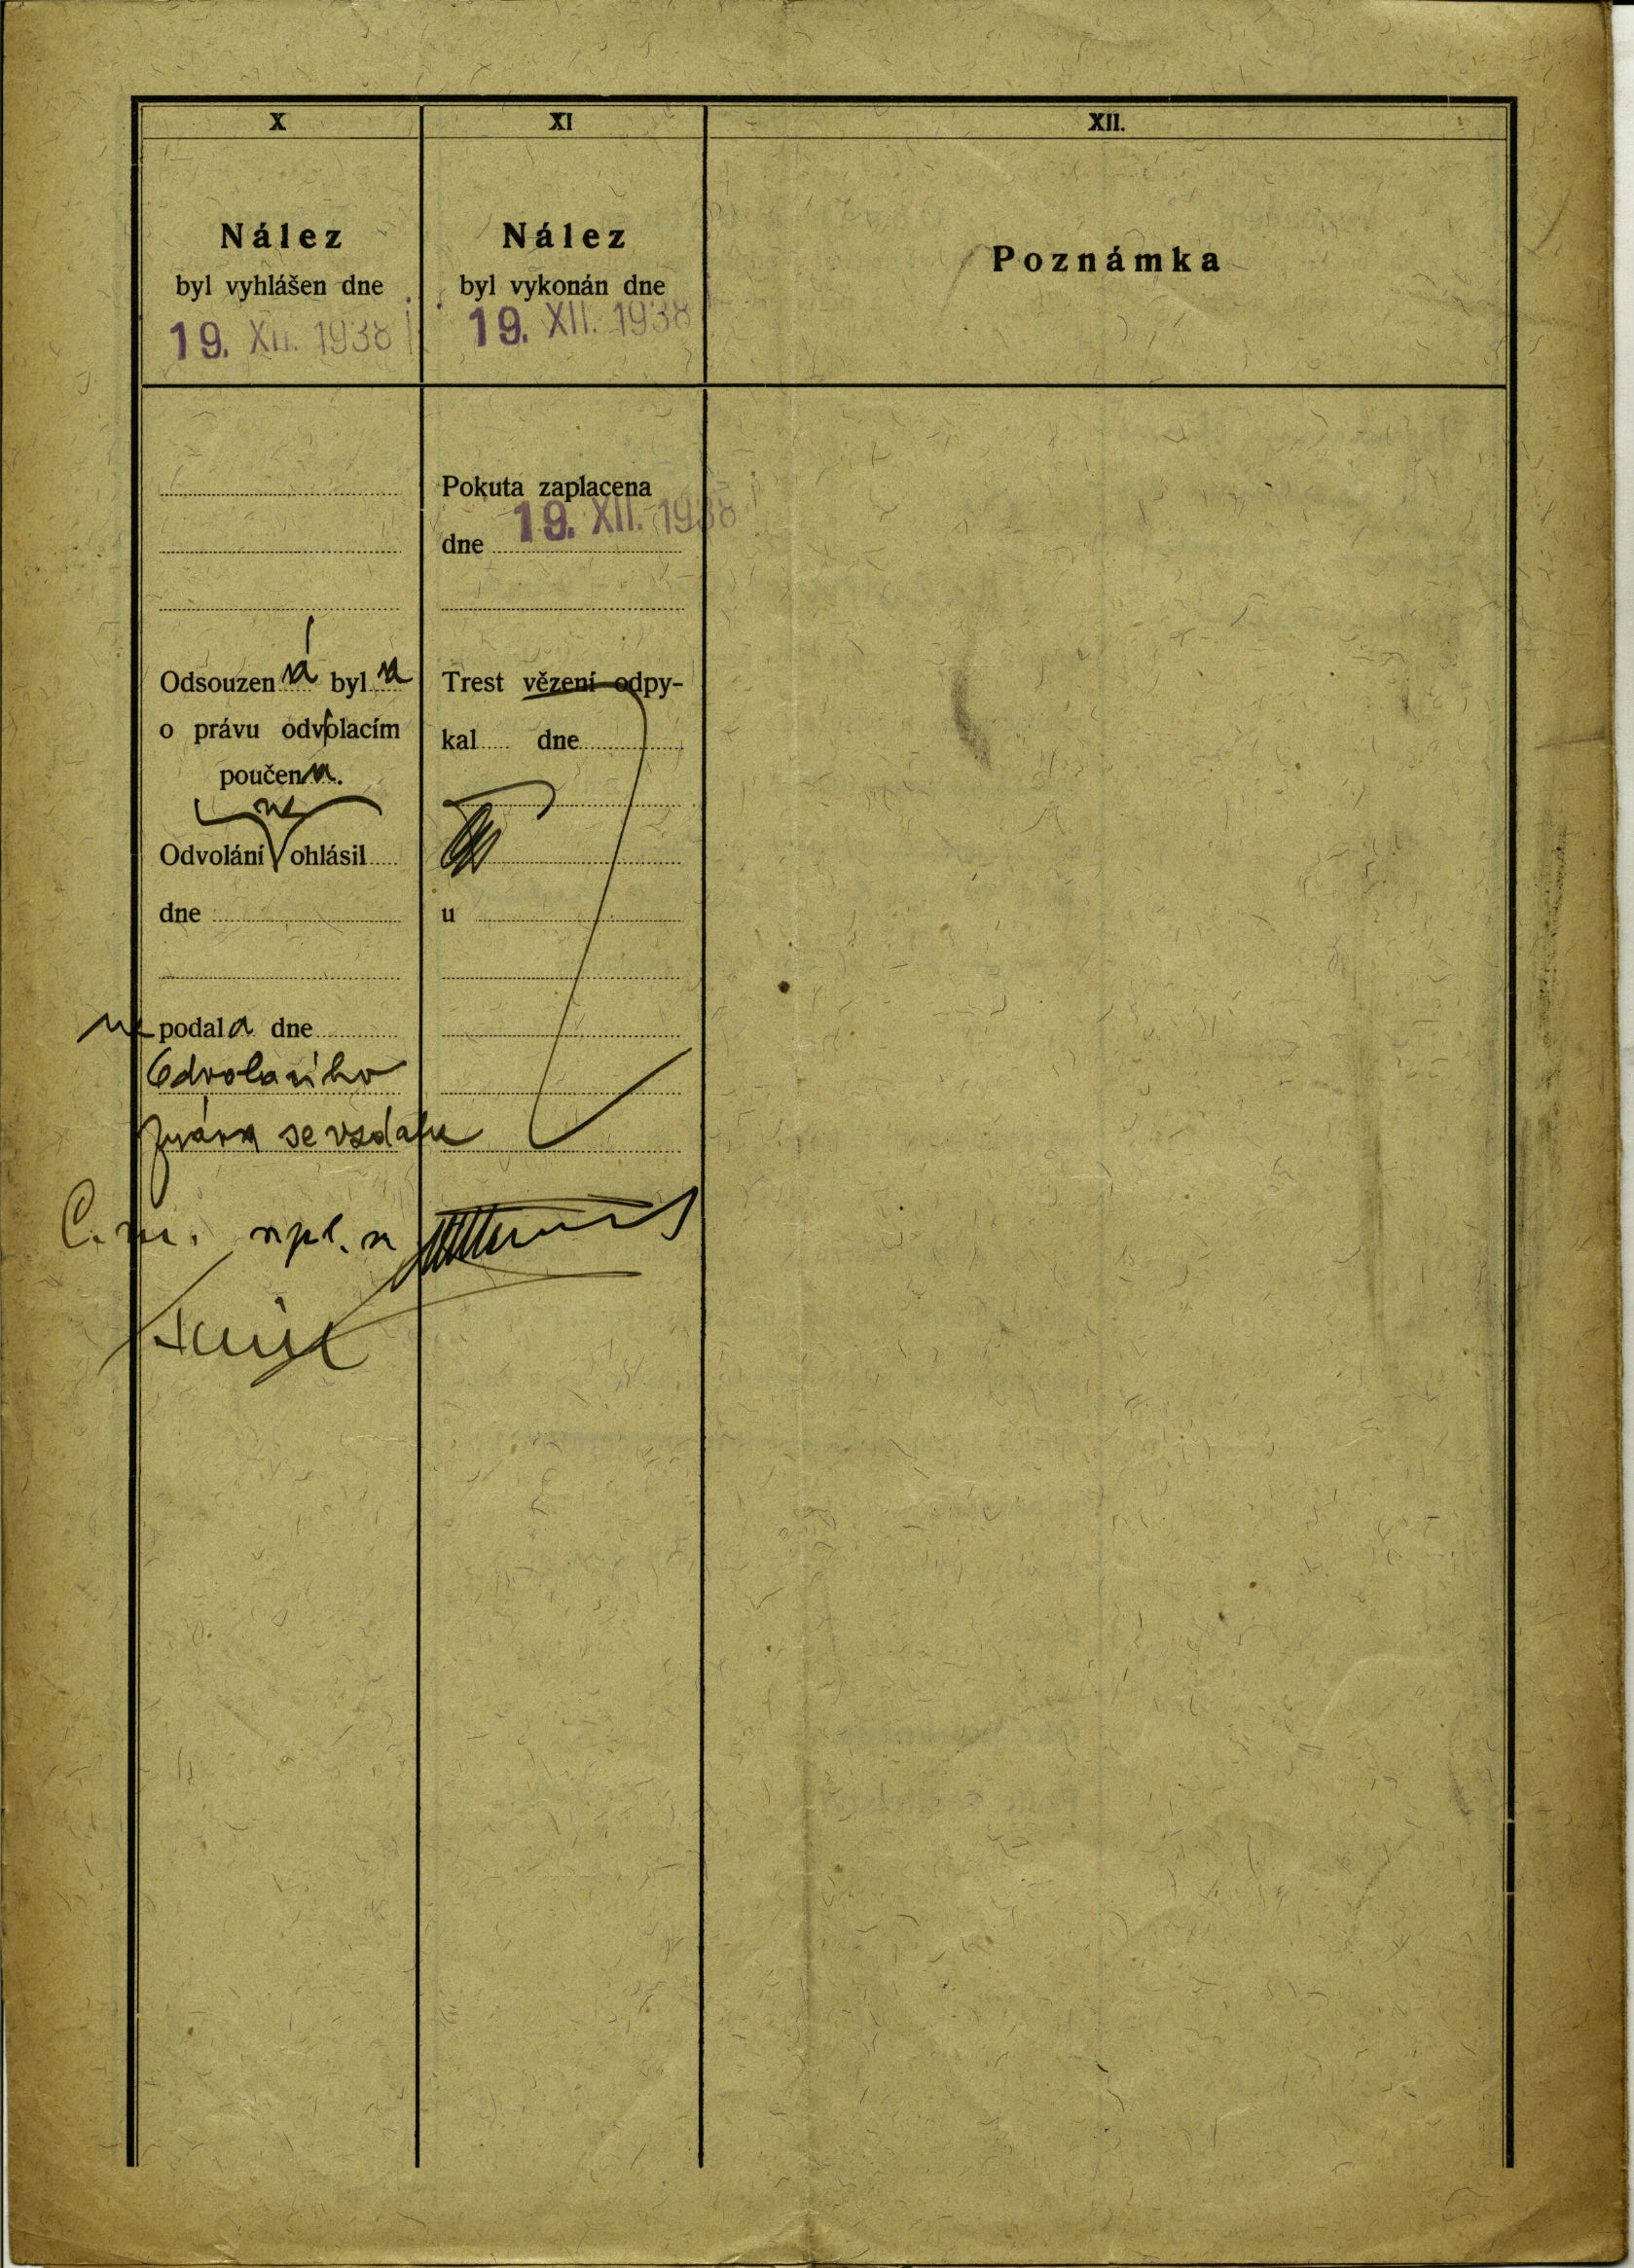 X
Nález
byl vyhlášen dne
19. XII. 1938
Odsouzen á byl a
o právu odvolacím
poučen a.
ne
Odvolání ohlásil
dne
ne podal a dne
Odvolacího
práva se vzdala
C. m.
XI
Nález
byl vykonán dne
19. XII. 1938
Pokuta zaplacena
19. XII. 1938
dne
Trest vězení odpy-
kal dne
u
XII.
Poznámka